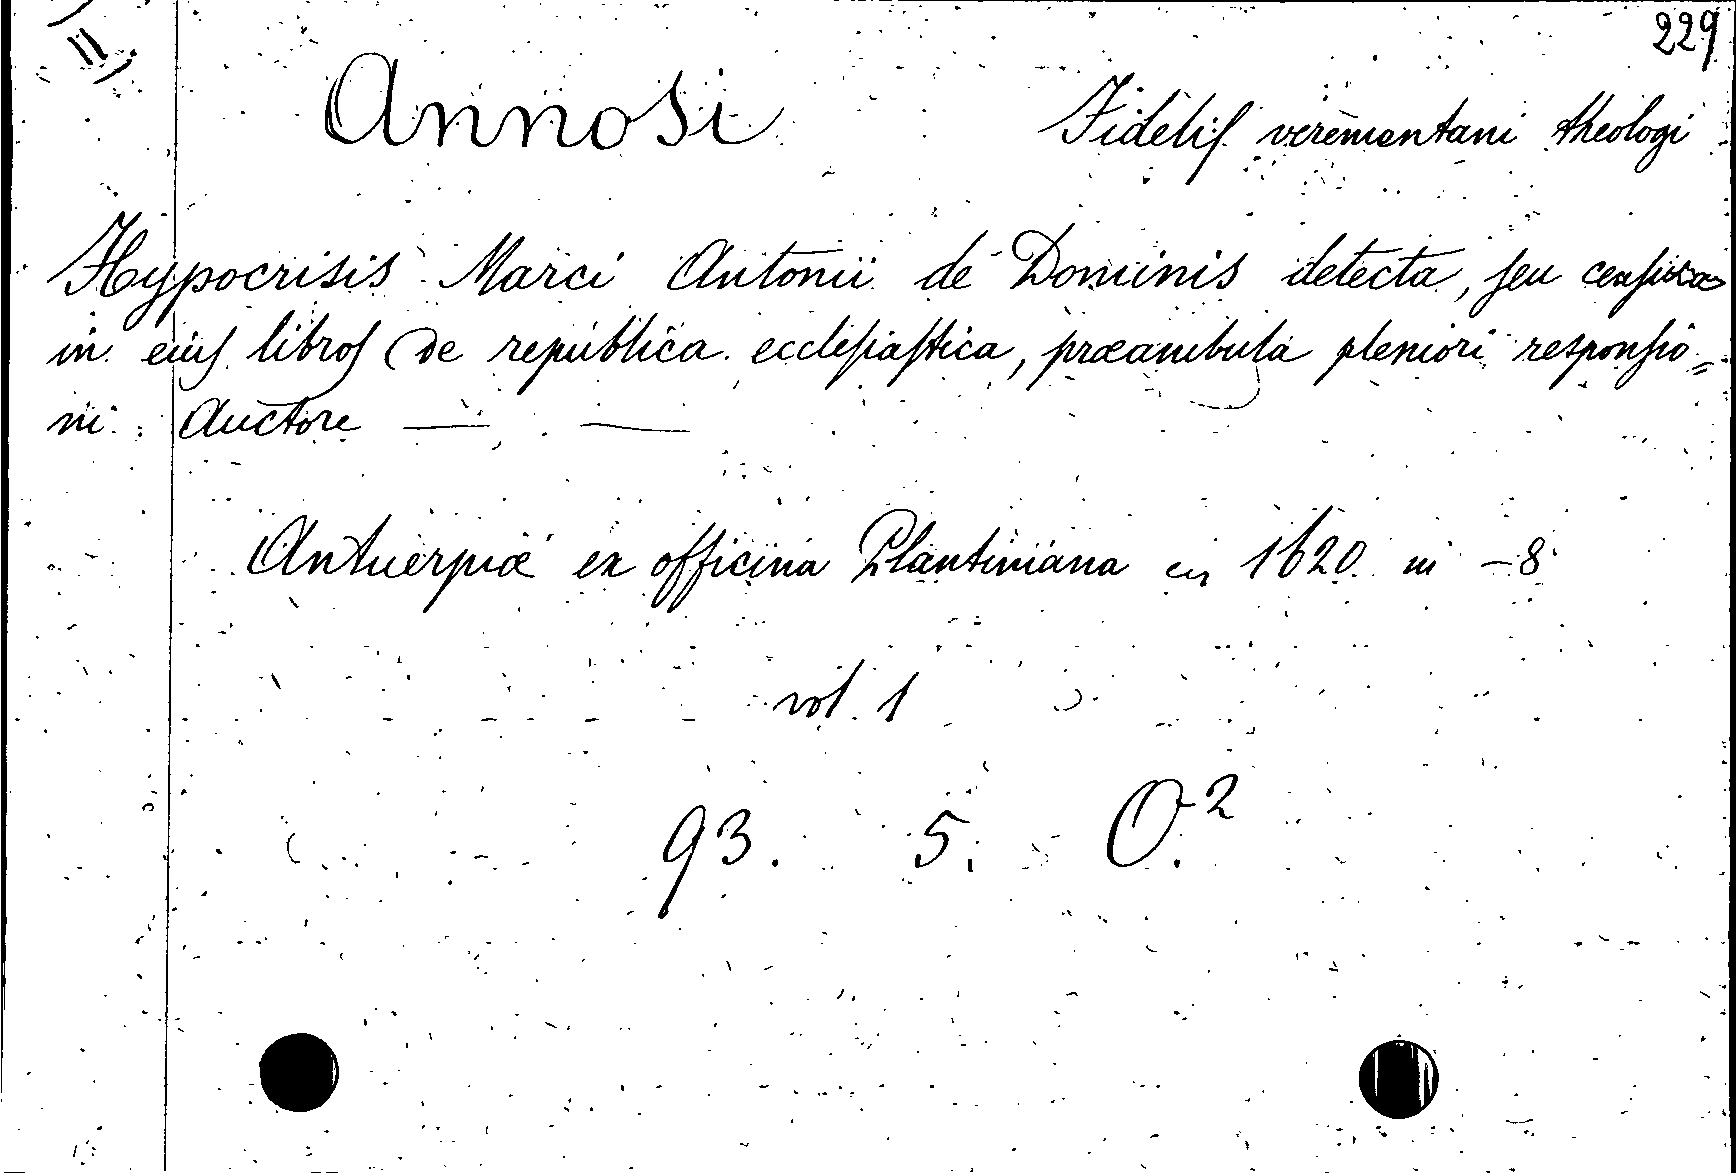 229
II
Annosi Fidelis verementani theologi
Hypocrisis Marci Antonii de Dominis detecta, seu censura
in eius libros de republica ecclesiastica, præambula pleniori responsio=
ni. Auctore — —
Antuerpiæ ex officina Plantiniana en 1620. in -8
vol. 1
93. 5. O.²